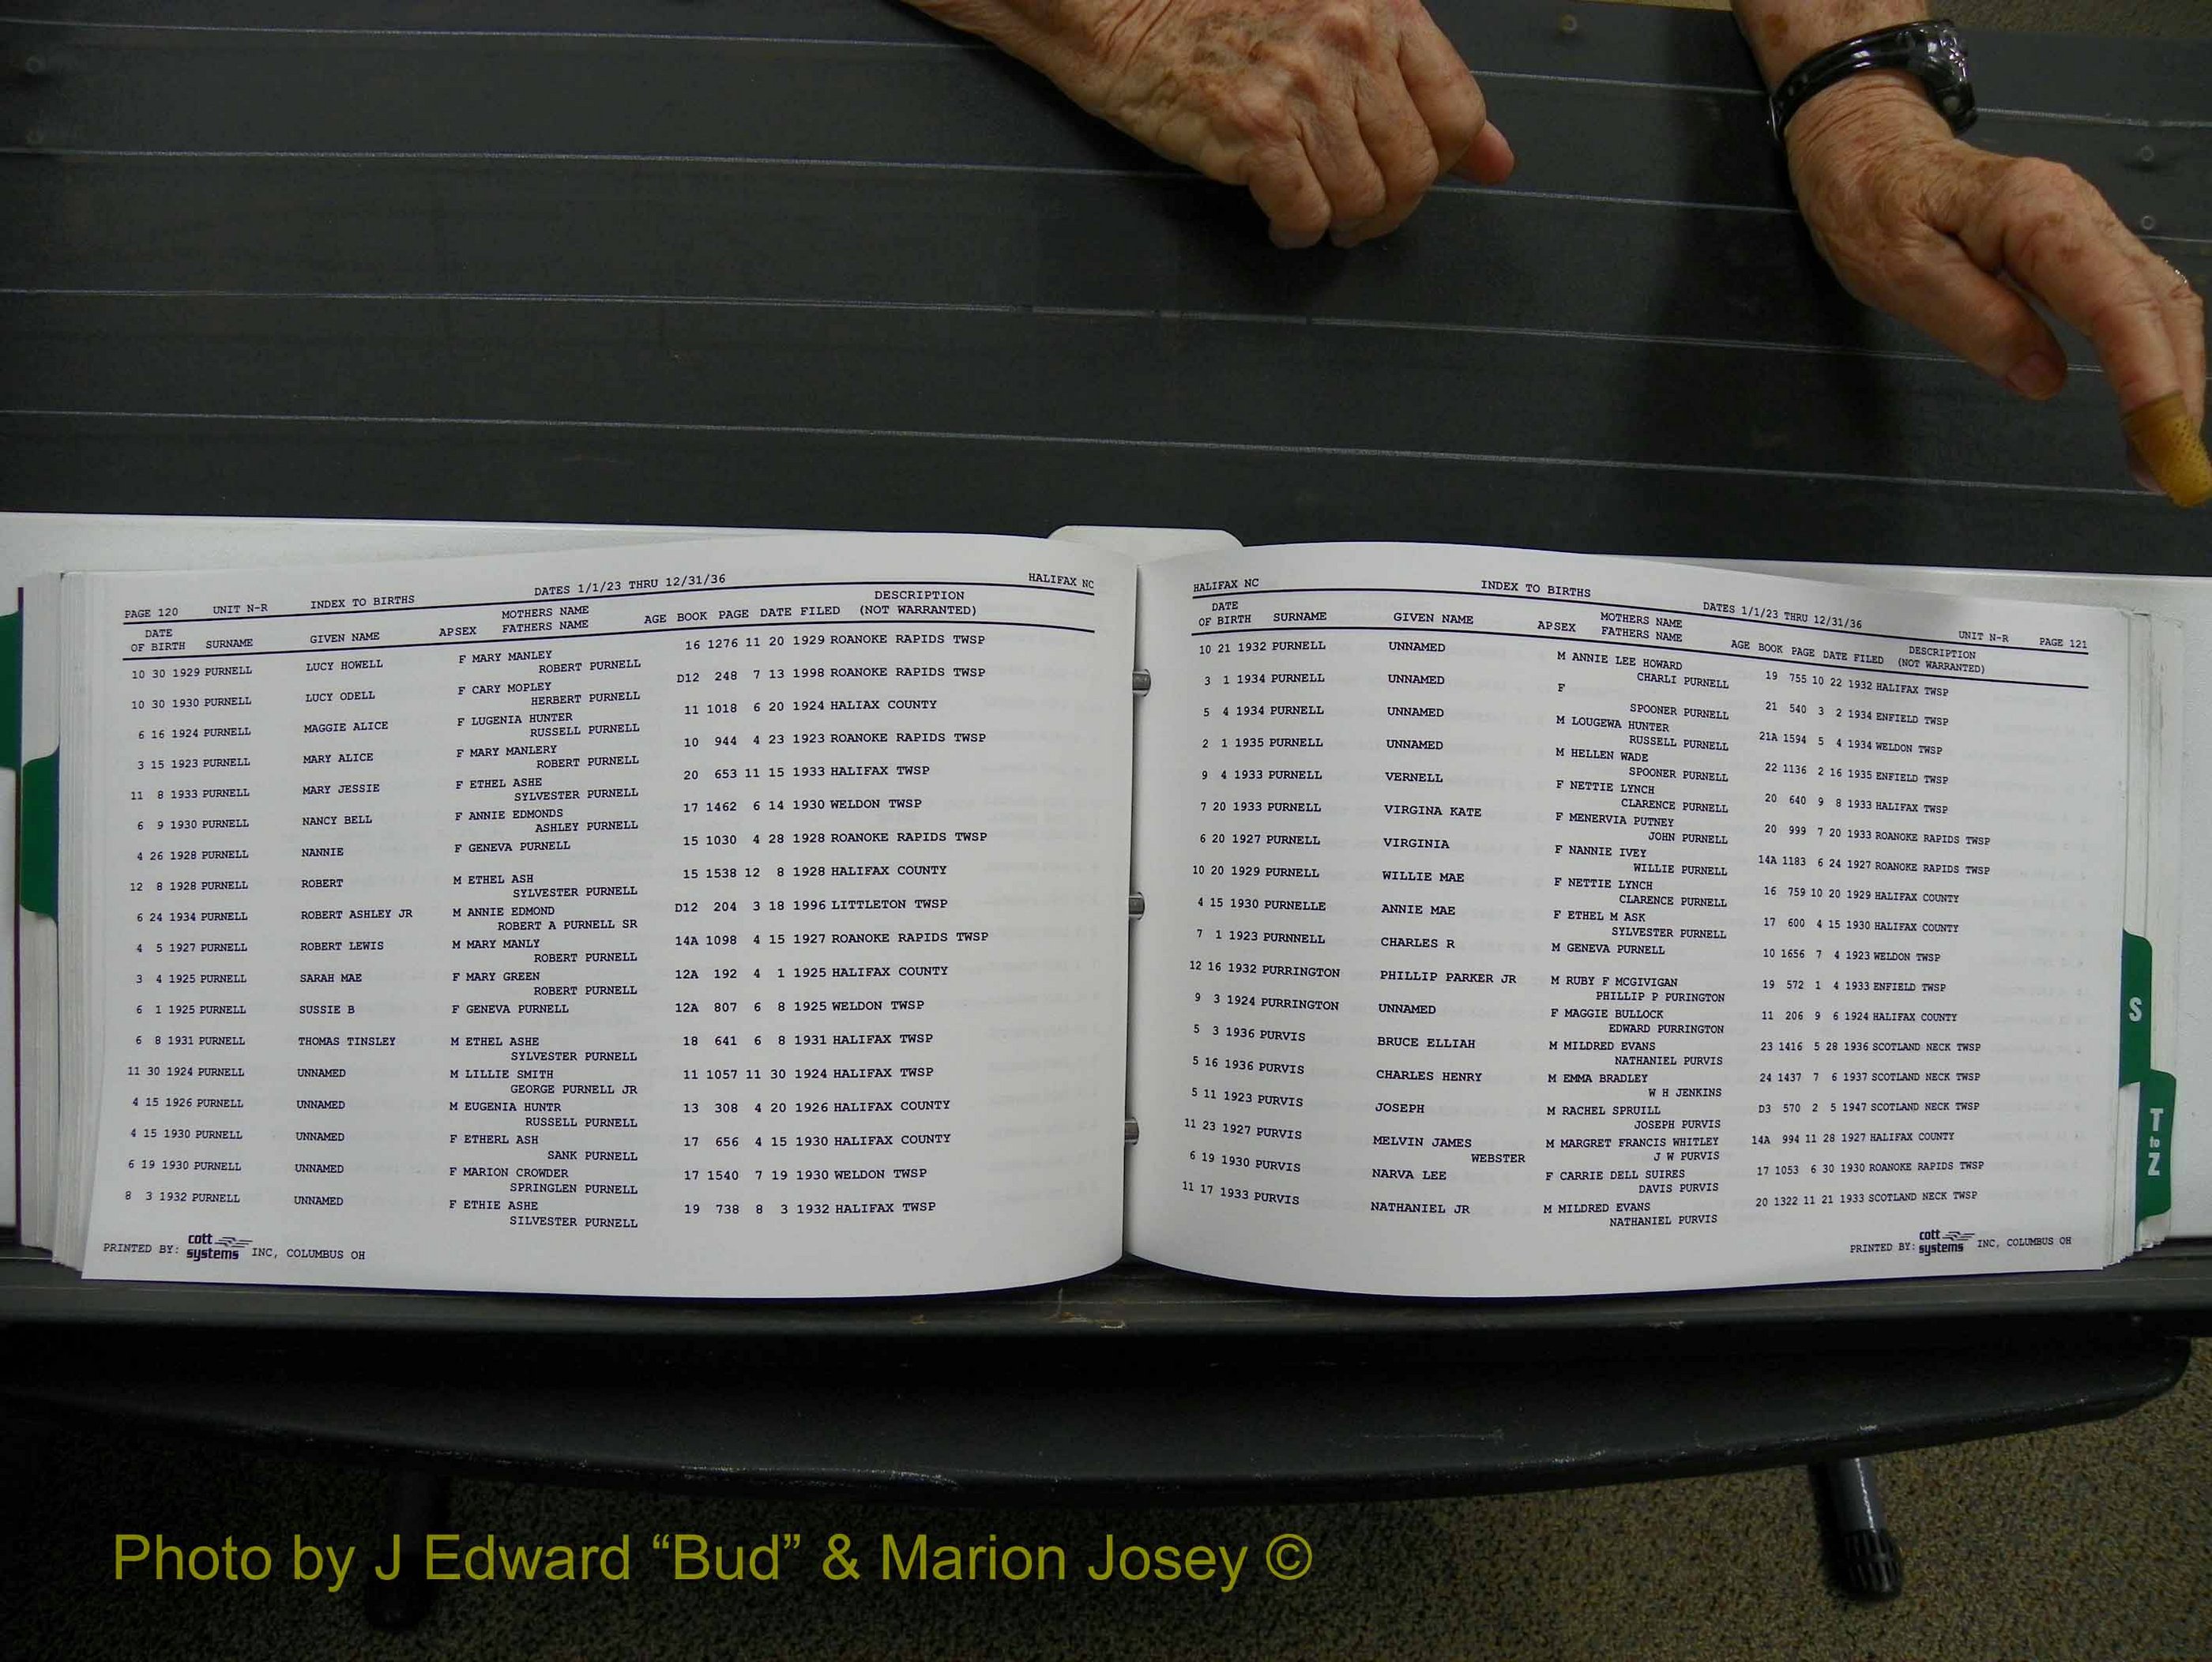 PAGE 120 UNIT N-R INDEX TO BIRTHS DATES 1/1/23 THRU 12/31/36 HALIFAX NC
DATE OF BIRTH SURNAME GIVEN NAME AP SEX MOTHERS NAME FATHERS NAME AGE BOOK PAGE DATE FILED DESCRIPTION (NOT WARRANTED)
10 30 1929 PURNELL LUCY HOWELL F MARY MANLEY 16 1276 11 20 1929 ROANOKE RAPIDS TWSP
ROBERT PURNELL
10 30 1930 PURNELL LUCY ODELL F CARY MOPLEY D12 248 7 13 1998 ROANOKE RAPIDS TWSP
HERBERT PURNELL
6 16 1924 PURNELL MAGGIE ALICE F LUGENIA HUNTER 11 1018 6 20 1924 HALIAX COUNTY
RUSSELL PURNELL
3 15 1923 PURNELL MARY ALICE F MARY MANLERY 10 944 4 23 1923 ROANOKE RAPIDS TWSP
ROBERT PURNELL
11 8 1933 PURNELL MARY JESSIE F ETHEL ASHE 20 653 11 15 1933 HALIFAX TWSP
SYLVESTER PURNELL
6 9 1930 PURNELL NANCY BELL F ANNIE EDMONDS 17 1462 6 14 1930 WELDON TWSP
ASHLEY PURNELL
4 26 1928 PURNELL NANNIE F GENEVA PURNELL 15 1030 4 28 1928 ROANOKE RAPIDS TWSP
12 8 1928 PURNELL ROBERT M ETHEL ASH 15 1538 12 8 1928 HALIFAX COUNTY
SYLVESTER PURNELL
6 24 1934 PURNELL ROBERT ASHLEY JR M ANNIE EDMOND D12 204 3 18 1996 LITTLETON TWSP
ROBERT A PURNELL SR
4 5 1927 PURNELL ROBERT LEWIS M MARY MANLY 14A 1098 4 15 1927 ROANOKE RAPIDS TWSP
ROBERT PURNELL
3 4 1925 PURNELL SARAH MAE F MARY GREEN 12A 192 4 1 1925 HALIFAX COUNTY
ROBERT PURNELL
6 1 1925 PURNELL SUSSIE B F GENEVA PURNELL 12A 807 6 8 1925 WELDON TWSP
6 8 1931 PURNELL THOMAS TINSLEY M ETHEL ASHE 18 641 6 8 1931 HALIFAX TWSP
SYLVESTER PURNELL
11 30 1924 PURNELL UNNAMED M LILLIE SMITH 11 1057 11 30 1924 HALIFAX TWSP
GEORGE PURNELL JR
4 15 1926 PURNELL UNNAMED M EUGENIA HUNTR 13 308 4 20 1926 HALIFAX COUNTY
RUSSELL PURNELL
4 15 1930 PURNELL UNNAMED F ETHERL ASH 17 656 4 15 1930 HALIFAX COUNTY
SANK PURNELL
6 19 1930 PURNELL UNNAMED F MARION CROWDER 17 1540 7 19 1930 WELDON TWSP
SPRINGLEN PURNELL
8 3 1932 PURNELL UNNAMED F ETHIE ASHE 19 738 8 3 1932 HALIFAX TWSP
SILVESTER PURNELL
PRINTED BY: cott systems INC, COLUMBUS OH
HALIFAX NC INDEX TO BIRTHS DATES 1/1/23 THRU 12/31/36 UNIT N-R PAGE 121
DATE OF BIRTH SURNAME GIVEN NAME AP SEX MOTHERS NAME FATHERS NAME AGE BOOK PAGE DATE FILED DESCRIPTION (NOT WARRANTED)
10 21 1932 PURNELL UNNAMED M ANNIE LEE HOWARD 19 755 10 22 1932 HALIFAX TWSP
CHARLI PURNELL
3 1 1934 PURNELL UNNAMED F 21 540 3 2 1934 ENFIELD TWSP
SPOONER PURNELL
5 4 1934 PURNELL UNNAMED M LOUGEWA HUNTER 21A 1594 5 4 1934 WELDON TWSP
RUSSELL PURNELL
2 1 1935 PURNELL UNNAMED M HELLEN WADE 22 1136 2 16 1935 ENFIELD TWSP
SPOONER PURNELL
9 4 1933 PURNELL VERNELL F NETTIE LYNCH 20 640 9 8 1933 HALIFAX TWSP
CLARENCE PURNELL
7 20 1933 PURNELL VIRGINA KATE F MENERVIA PUTNEY 20 999 7 20 1933 ROANOKE RAPIDS TWSP
JOHN PURNELL
6 20 1927 PURNELL VIRGINIA F NANNIE IVEY 14A 1183 6 24 1927 ROANOKE RAPIDS TWSP
WILLIE PURNELL
10 20 1929 PURNELL WILLIE MAE F NETTIE LYNCH 16 759 10 20 1929 HALIFAX COUNTY
CLARENCE PURNELL
4 15 1930 PURNELLE ANNIE MAE F ETHEL M ASK 17 600 4 15 1930 HALIFAX COUNTY
SYLVESTER PURNELL
7 1 1923 PURNNELL CHARLES R M GENEVA PURNELL 10 1656 7 4 1923 WELDON TWSP
12 16 1932 PURRINGTON PHILLIP PARKER JR M RUBY F MCGIVIGAN 19 572 1 4 1933 ENFIELD TWSP
PHILLIP P PURINGTON
9 3 1924 PURRINGTON UNNAMED F MAGGIE BULLOCK 11 206 9 6 1924 HALIFAX COUNTY
EDWARD PURRINGTON
5 3 1936 PURVIS BRUCE ELLIAH M MILDRED EVANS 23 1416 5 28 1936 SCOTLAND NECK TWSP
NATHANIEL PURVIS
5 16 1936 PURVIS CHARLES HENRY M EMMA BRADLEY 24 1437 7 6 1937 SCOTLAND NECK TWSP
W H JENKINS
5 11 1923 PURVIS JOSEPH M RACHEL SPRUILL D3 570 2 5 1947 SCOTLAND NECK TWSP
JOSEPH PURVIS
11 23 1927 PURVIS MELVIN JAMES M MARGRET FRANCIS WHITLEY 14A 994 11 28 1927 HALIFAX COUNTY
WEBSTER J W PURVIS
6 19 1930 PURVIS NARVA LEE F CARRIE DELL SUIRES 17 1053 6 30 1930 ROANOKE RAPIDS TWSP
DAVIS PURVIS
11 17 1933 PURVIS NATHANIEL JR M MILDRED EVANS 20 1322 11 21 1933 SCOTLAND NECK TWSP
NATHANIEL PURVIS
PRINTED BY: cott systems INC, COLUMBUS OH
S
T to Z
Photo by J Edward “Bud” & Marion Josey ©